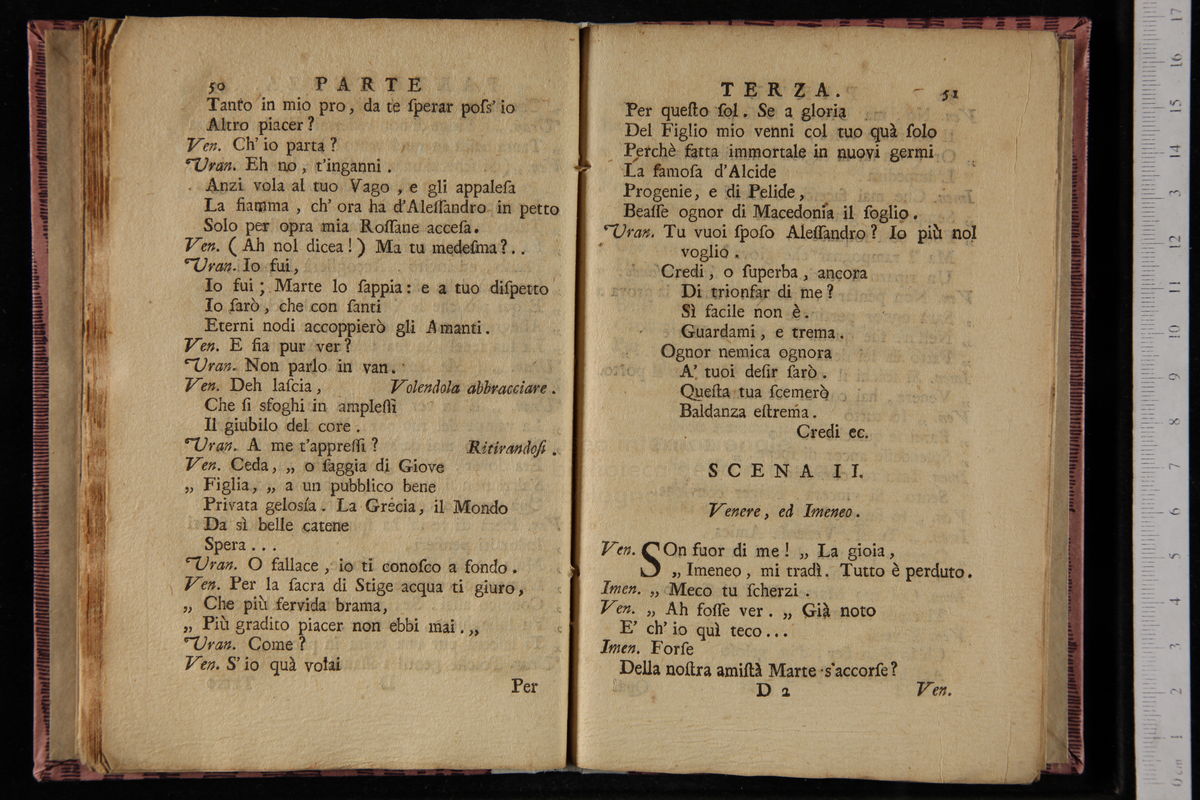 50 PARTE
Tanto in mio pro, da te ſperar poſs' io
Altro piacer?
Ven. Ch' io parta?
Uran. Eh no, t'inganni.
Anzi vola al tuo Vago, e gli appaleſa
La fiamma, ch' ora ha d'Aleſſandro in petto
Solo per opra mia Roſſane acceſa.
Ven. (Ah nol dicea!) Ma tu medeſma?..
Uran. Io fui,
Io fui; Marte lo ſappia: e a tuo diſpetto
Io ſarò, che con ſanti
Eterni nodi accoppierò gli Amanti.
Ven. E fia pur ver?
Uran. Non parlo in van.
Ven. Deh laſcia, Volendola abbracciare.
Che ſi sfoghi in ampleſſi
Il giubilo del core.
Uran. A me t'appreſſi? Ritirandoſi.
Ven. Ceda, „ o ſaggia di Giove
„ Figlia, „ a un pubblico bene
Privata geloſia. La Grecia, il Mondo
Da sì belle catene
Spera...
Uran. O fallace, io ti conoſco a fondo.
Ven. Per la ſacra di Stige acqua ti giuro,
„ Che più fervida brama,
„ Più gradito piacer non ebbi mai. „
Uran. Come?
Ven. S' io quà volai
Per
TERZA. 51
Per queſto ſol. Se a gloria
Del Figlio mio venni col tuo quà ſolo
Perchè fatta immortale in nuovi germi
La famoſa d'Alcide
Progenie, e di Pelide,
Beaſſe ognor di Macedonia il ſoglio.
Uran. Tu vuoi ſpoſo Aleſſandro? Io più nol
voglio.
Credi, o ſuperba, ancora
Di trionfar di me?
Sì facile non è.
Guardami, e trema.
Ognor nemica ognora
A' tuoi deſir ſarò.
Queſta tua ſcemerò
Baldanza eſtrema.
Credi ec.
SCENA II.
Venere, ed Imeneo.
Ven. SOn fuor di me! „ La gioia,
„ Imeneo, mi tradì. Tutto è perduto.
Imen. „ Meco tu ſcherzi.
Ven. „ Ah foſſe ver. „ Già noto
E' ch' io quì teco...
Imen. Forſe
Della noſtra amiſtà Marte s'accorſe?
D 2 Ven.
0 cm 1 2 3 4 5 6 7 8 9 10 11 12 13 14 15 16 17